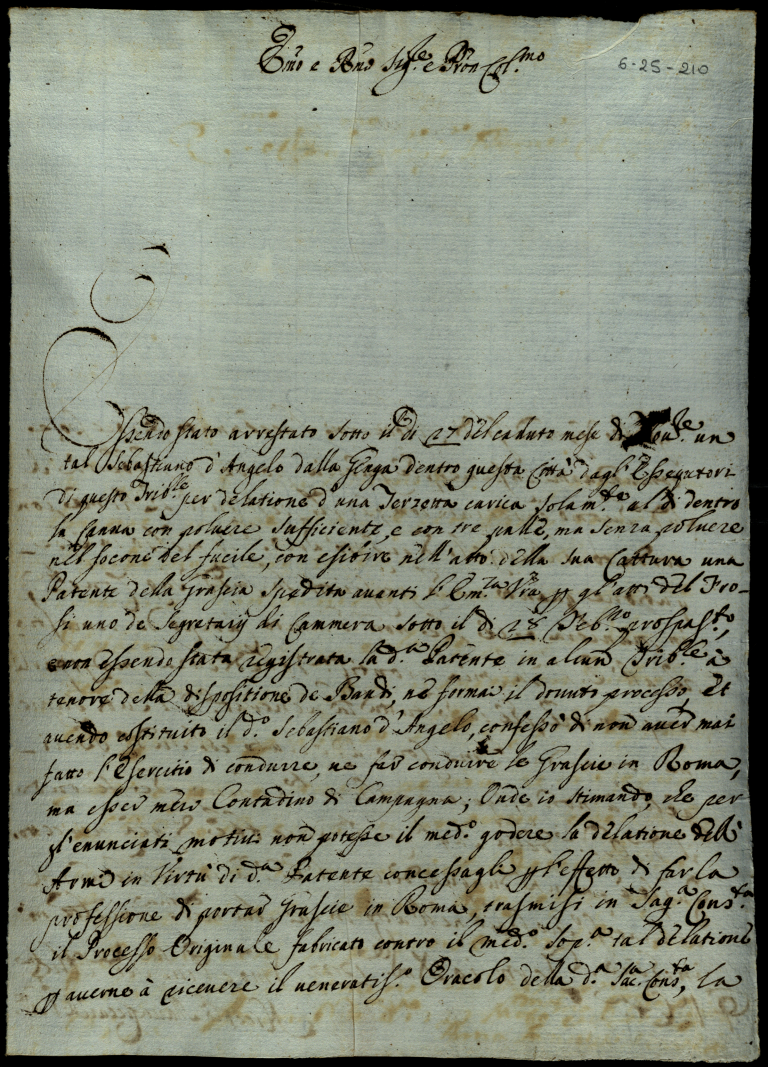 Emo e Rmo Sig.re e Pron Col.mo
6-25-210
Essendo stato arrestato sotto il di 27 del caduto mese di un
tal Sebastiano d'Angelo dalla Genga dentro questa Città dagl'Essecutori
di questo Trib.le per delatione d'una Terzetta carica solam.te al di dentro
la Canna con polvere sufficiente, e con tre palle, ma senza polvere
nel focone del fucile, con esibire nell'atto della sua Cattura una
Patente della Grascia spedita avanti l'Em.za Vra p gl'atti del Fro-
si uno de Segretarij di Cammera sotto il di 28 Feb.ro prospas.to,
e non essendo stata registrata la d.a Patente in alcun Trib.le à
tenore della dispositione de Bandi, ne formai il dovuto processo, Et
avendo costituito il d.o Sebastiano d'Angelo, confessò di non aver mai
fatto l'Esercitio di condurre, ne far condurre le Grascie in Roma,
ma esser mero Contadino di Campagna; Onde io stimando, che per
gl'enunciati motivi non potesse il med.o godere la delatione dell'
Armi in Virtù di d.a Patente concessagli p l'effetto di far la
professione di portar Grascie in Roma, trasmisi in Sag.a Cons.ta
il Processo Originale fabricato contro il med.o sop.a tal delatione
p averne à ricevere il veneratis.o Oracolo della d.a Sac. Cons.ta, la